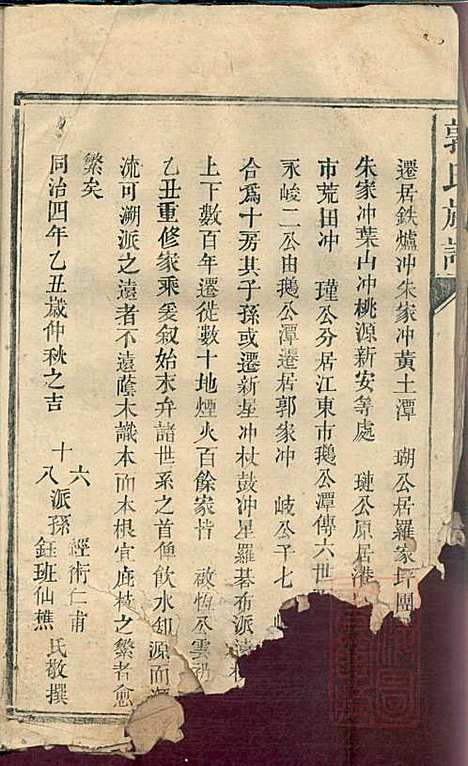 郭氏族譜
遷居鉄爐冲朱家冲黃土潭　瑚公居羅家坪團
朱家冲葉山冲桃源新安等處　璉公原居港
市荒田冲　瑾公分居江東市鵝公潭傳六世
永峻二公由鵝公潭遷居郭家冲　岐公子七
合爲十房其子孫或遷新星冲杖鼓冲星羅碁布派遠
上下數百年遷徙數十地煙火百餘家皆　啟恆公雲礽
乙丑重修家乘爰叙始末弁諸世系之首俾飲水知源而
流可溯派之遠者不遠蔭木識本而木根宜庇枝之繁者愈
繁矣
同治四年乙丑歲仲秋之吉
十六
八派孫
經術仁甫
鈺班仙樵
氏敬撰